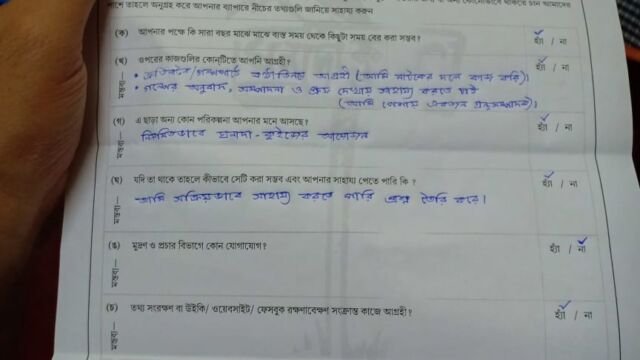 পাশে তাহলে অনুগ্রহ করে আপনার ব্যাপারে নীচের তথ্যগুলি জানিয়ে সাহায্য করুন
(ক) আপনার পক্ষে কি সারা বছর মাঝে মাঝে ব্যস্ত সময় থেকে কিছুটা সময় বের করা সম্ভব? হ্যাঁ / না
(খ) ওপরের কাজগুলির কোন্‌টিতে আপনি আগ্রহী? হ্যাঁ / না
মন্তব্য—
আগ্রহী (আমি নাটকের দলে কাজ করি)।
• গল্পের অনুবাদ, সম্পাদনা ও প্রুফ দেখায় সাহায্য করতে চাই
(আমি পেশায় একজন গ্রন্থসম্পাদক)।
(গ) এ ছাড়া অন্য কোন পরিকল্পনা আপনার মনে আসছে? হ্যাঁ / না
মন্তব্য—
নিয়মিতভাবে ঘনাদা-কুইজের আয়োজন
(ঘ) যদি তা থাকে তাহলে কীভাবে সেটি করা সম্ভব এবং আপনার সাহায্য পেতে পারি কি ? হ্যাঁ / না
মন্তব্য—
আমি সক্রিয়ভাবে সাহায্য করতে পারি প্রশ্ন তৈরি করে।
(ঙ) মুদ্রণ ও প্রচার বিভাগে কোন যোগাযোগ? হ্যাঁ / না
মন্তব্য—
(চ) তথ্য সংরক্ষণ বা উইকি/ ওয়েবসাইট/ ফেসবুক রক্ষণাবেক্ষণ সংক্রান্ত কাজে আগ্রহী? হ্যাঁ / না
মন্তব্য—